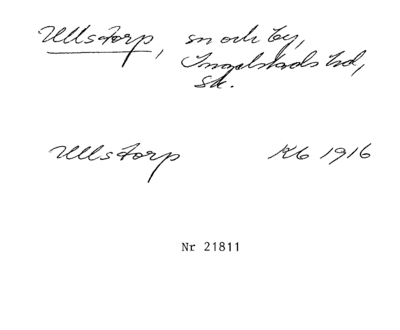 Ullstorp, sn och by,
Ingelstads hd,
Sk.
Ullstorp Kb 1916
Nr 21811